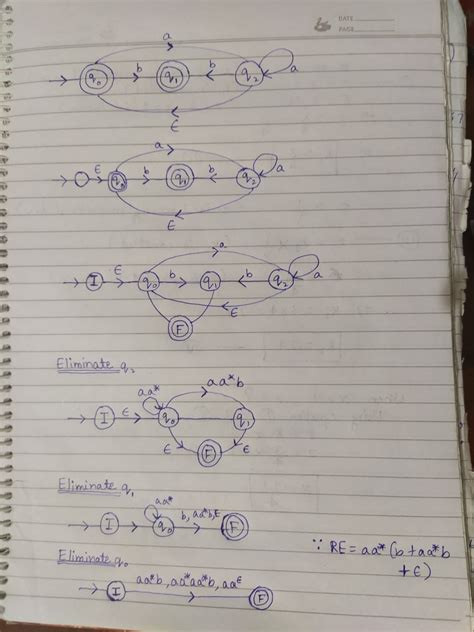 DATE
PAGE
a
q₀ b q₁ b q₂ a
ε
a
ε q₀ b q₁ b q₂ a
ε
a
I ε q₀ b q₁ b q₂ a
ε
F
Eliminate q₂
aa* aa*b
I ε q₀ q₁
ε F ε
Eliminate q₁
aa*
I ε q₀ b, aa*b, ε F
∵ RE = aa* (b + aa*b
+ ε)
Eliminate q₀
aa*b, aa*aa*b, aaε
I F